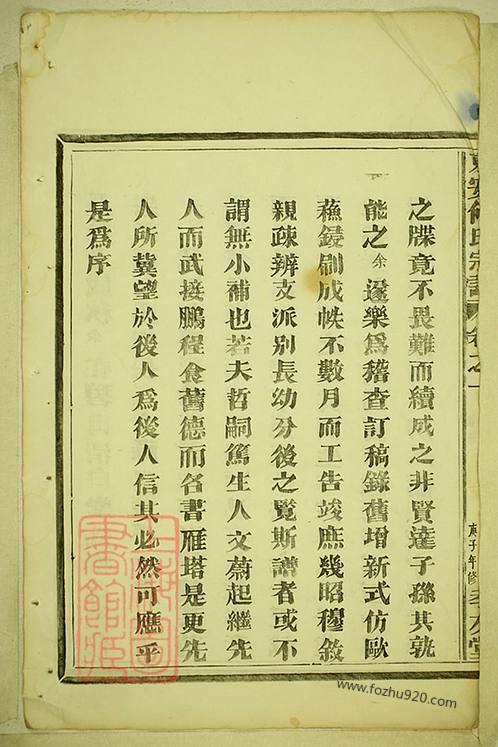 東安何氏宗譜 卷之一 庚子年修 孝友堂
之牒竟不畏難而續成之非賢達子孫其孰
能之余遂樂為稽查訂稿錄舊增新式仿歐
蘓鋟刷成帙不數月而工告竣庶幾昭穆敘
親疎辨支派別長幼分後之覧斯譜者或不
謂無小補也若夫哲嗣篤生人文蔚起繼先
人而武接鵬程食舊德而名書雁塔是更先
人所冀望於後人為後人信其必然可應乎
是爲序
上海圖書館藏
www.fozhu920.com